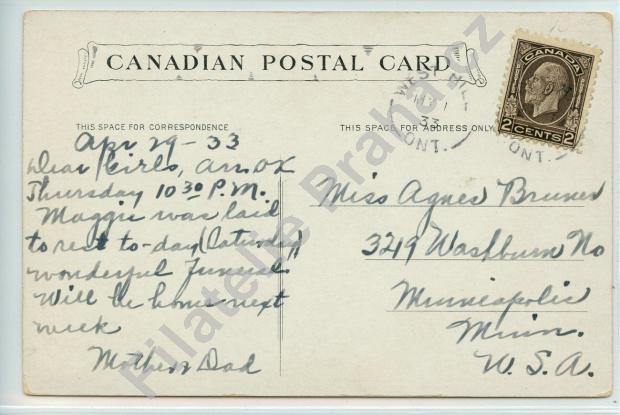 CANADIAN POSTAL CARD
THIS SPACE FOR CORRESPONDENCE
Apr 29-33
Dear Girls, Arr. OK
Thursday 10 30 P.M.
Maggie was laid
to rest to-day (Saturday)
wonderful Funeral
Will be home next
week
Mother & Dad
THIS SPACE FOR ADDRESS ONLY
Miss Agnes Bruner
3219 Washburn No
Minneapolis
Minn.
U.S.A.
WEST HILL
1
33
ONT.
CANADA
2 CENTS 2
Filatelie Praha.cz